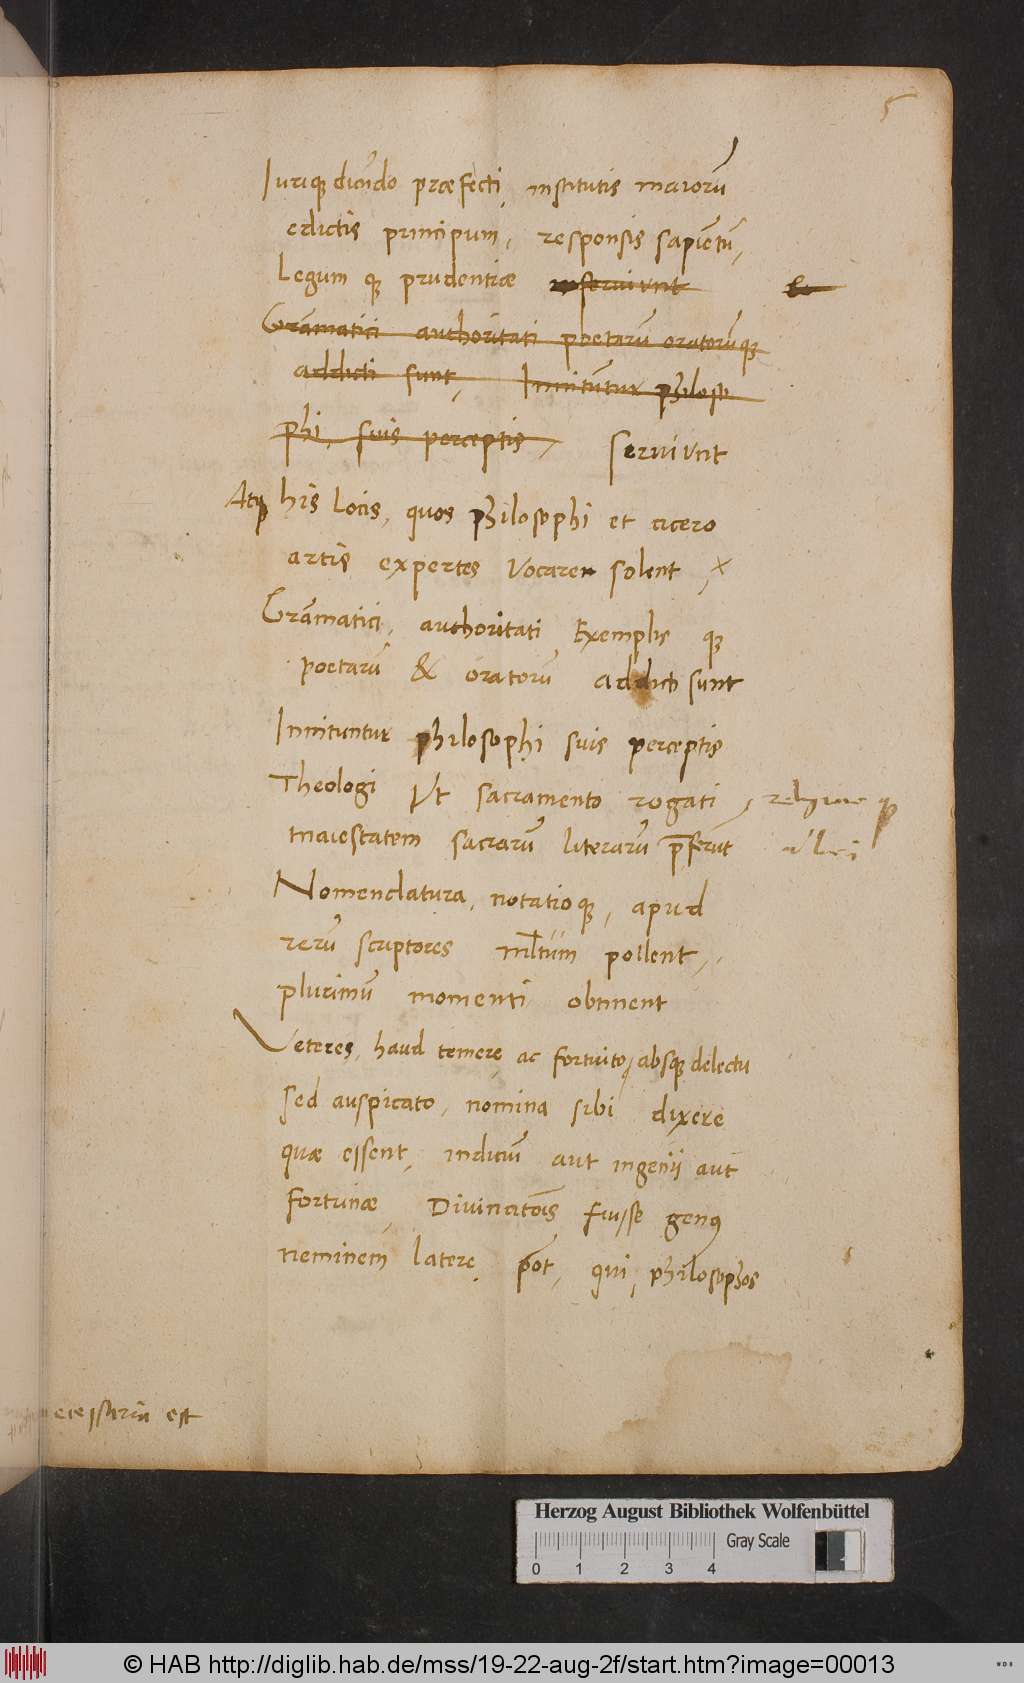 5
Iuriq; dicūdo præfecti, institutis maiorū
edictis principum, responsis sapiētū,
legum q; prudentiæ inseruiunt &
Grāmatici authoritati poetarū oratorūq;
addicti sunt, Innitūtur philoso
phi, suis perceptis, seruiunt
Atq; his locis, quos philosophi et cicero
artis expertes vocaren solent, x
Grāmatici, authoritati Exemplis q;
poetarū & oratorū addicti sunt
Innituntur philosophi suis perceptis
Theologi Vt sacramento rogati, q;
maiestatem sacrarū literarū p̄ferūt
Nomenclatura, notatioq;, apud
rerū scriptores mltum pollent,
plurimū momenti obtinent
Veteres, haud temere ac fortuito, absq; delectu
sed auspicato, nomina sibi dixere
quæ essent, indiciū aut ingenij aut
fortunæ, Divinatōis fuisse genꝰ
neminem latere pōt, qui, philosophos
ecessaria est
Herzog August Bibliothek Wolfenbüttel
Gray Scale
0 1 2 3 4
© HAB http://diglib.hab.de/mss/19-22-aug-2f/start.htm?image=00013